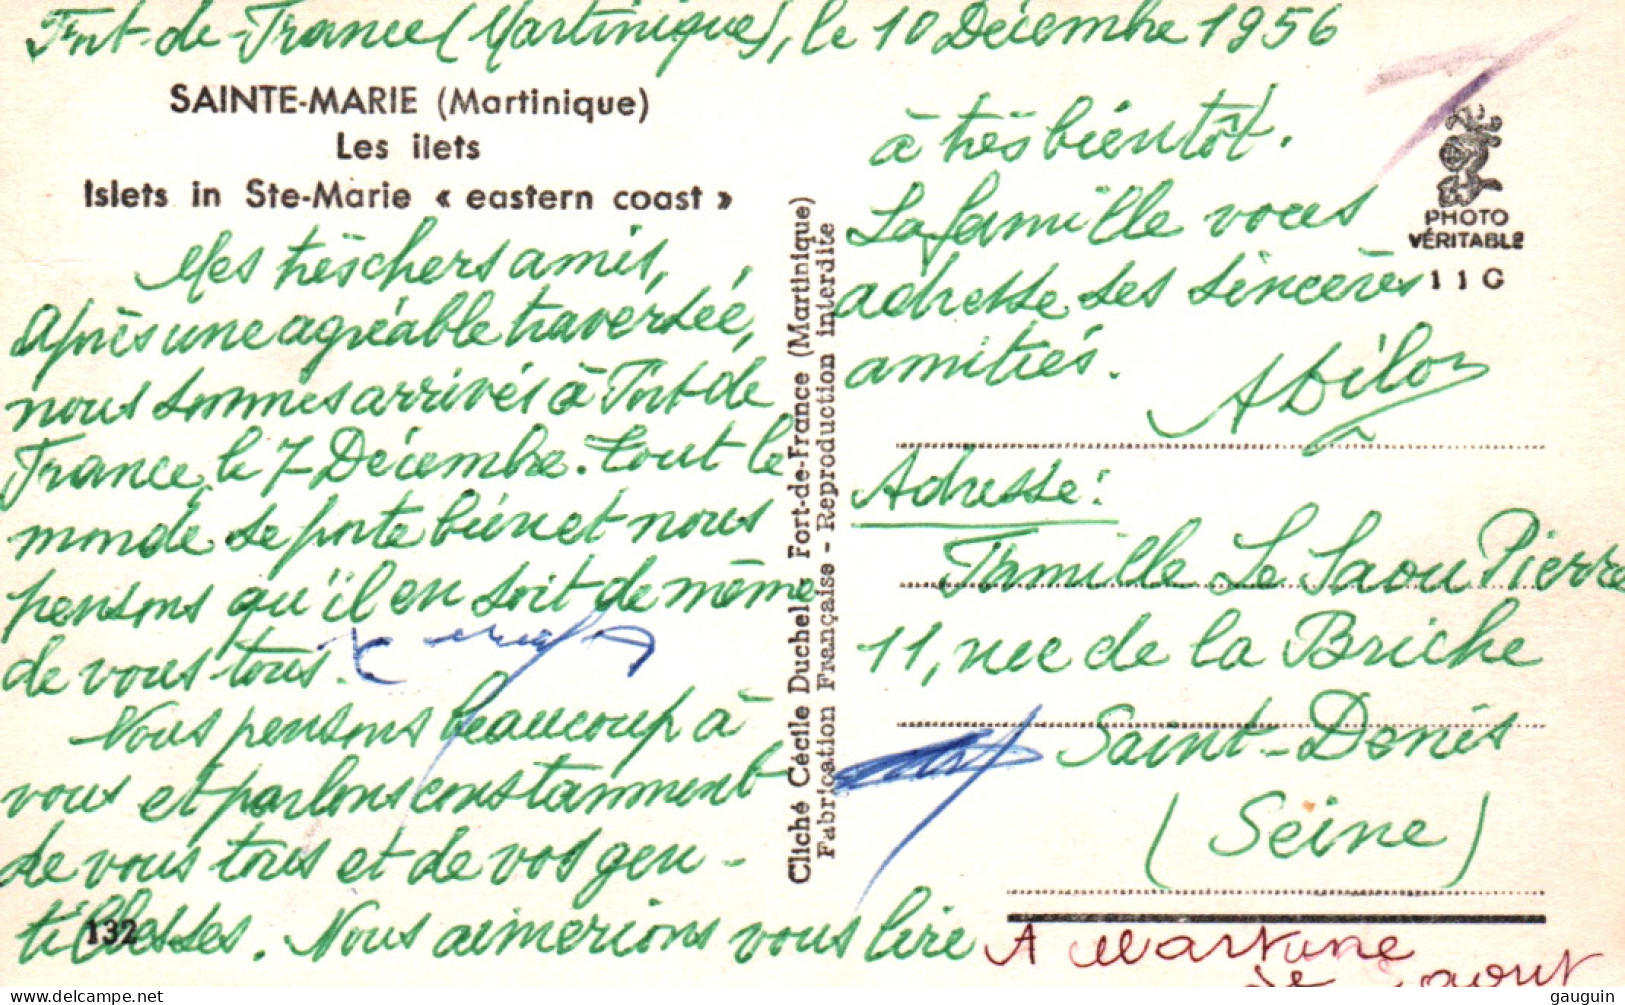 Fort-de-France (Martinique), le 10 Décembre 1956
SAINTE-MARIE (Martinique)
Les ilets
Islets in Ste-Marie « eastern coast »
Mes très chers amis,
Après une agréable traversée,
nous sommes arrivés à Fort-de
France, le 7 Décembre. Tout le
monde se porte bien et nous
pensons qu'il en soit de même
de vous tous.
Nous pensons beaucoup à
vous et parlons constamment
de vous tous et de vos gen-
tillesses. Nous aimerions vous lire
132
Cliché Cécile Duchel Fort-de-France (Martinique)
Fabrication Française - Reproduction interdite
à très bientôt.
La famille vous
adresse ses sincères
amitiés.
PHOTO
VÉRITABLE
11 G
Adresse:
Famille Le Saou Pierre
11, rue de la Briche
Saint-Denis
(Seine)
A
gauguin